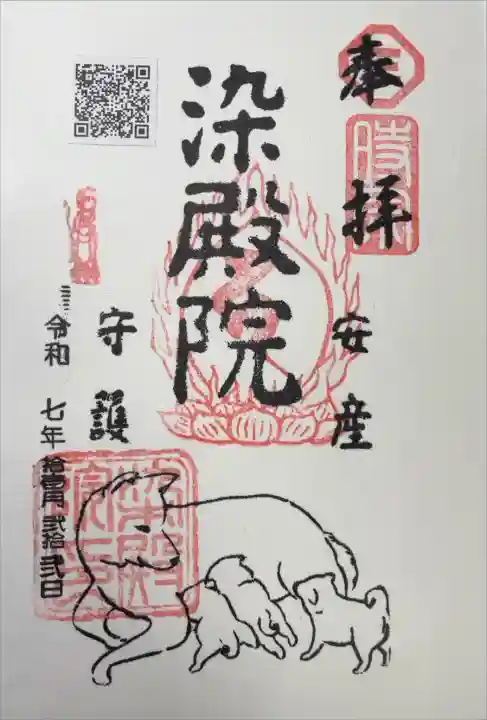 奉拝
安産
染殿院
守護
令和 七年 拾壹月 弐拾弐日